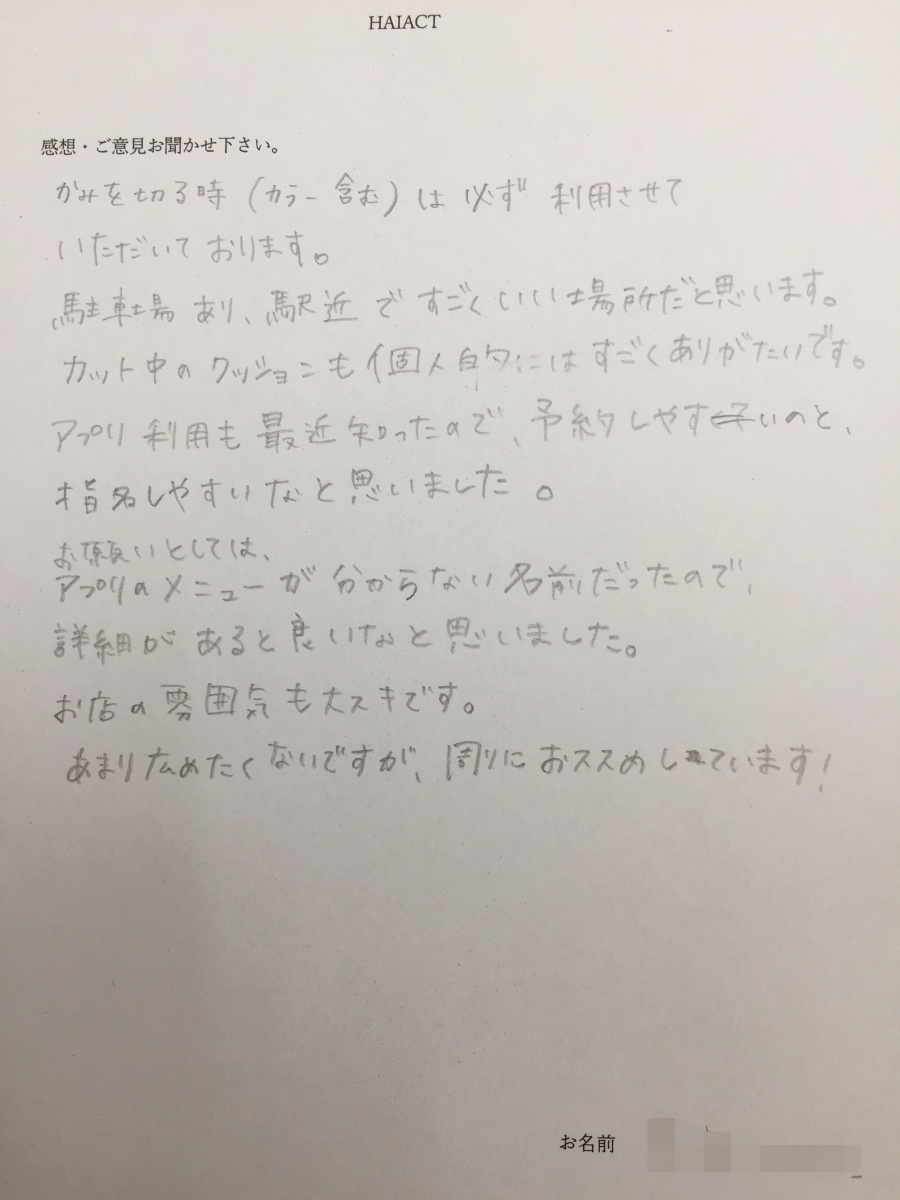 HAIACT
感想・ご意見お聞かせ下さい。
かみを切る時(カラー含む)は必ず利用させて
いただいております。
駐車場あり、駅近ですごくいい場所だと思います。
カット中のクッションも個人的にはすごくありがたいです。
アプリ利用も最近知ったので、予約しやすいのと、
指名しやすいなと思いました。
お願いとしては、
アプリのメニューが分からない名前だったので、
詳細があると良いなと思いました。
お店の雰囲気も大スキです。
あまり広めたくないですが、周りにおススメしています!
お名前